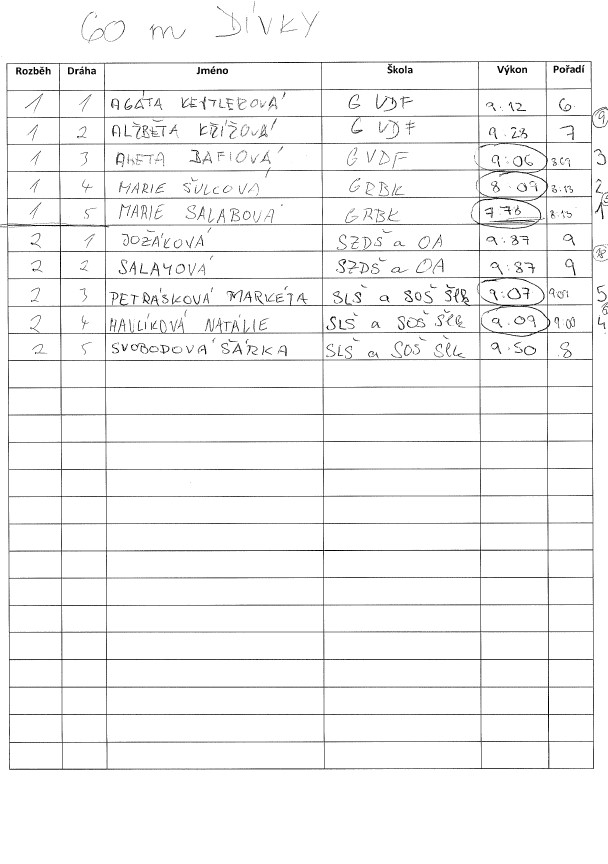 60 m DÍVKY
Rozběh Dráha Jméno Škola Výkon Pořadí
1 1 AGÁTA G VDF 9:12 6
1 2 ALŽBĚTA KŘÍŽOVÁ G VDF 9.28 7
1 3 G VDF 9:06 3
1 4 MARIE ŠULCOVÁ GRBK 8.09 8.13 2
1 5 MARIE SALABOVÁ GRBK 7.78 8.15 1
2 1 JOŽÁKOVÁ SZDŠ a OA 9:87 9
2 2 SZDŠ a OA 9:87 9
2 3 PETRÁŠKOVÁ MARKÉTA SLŠ a SOŠ Šlk 9:07 5
2 4 HAVLÍKOVÁ NATÁLIE SLŠ a SOŠ Šlk 9.09 9.00 4
2 5 SVOBODOVÁ ŠÁRKA SLŠ a SOŠ Šlk 9.50 8